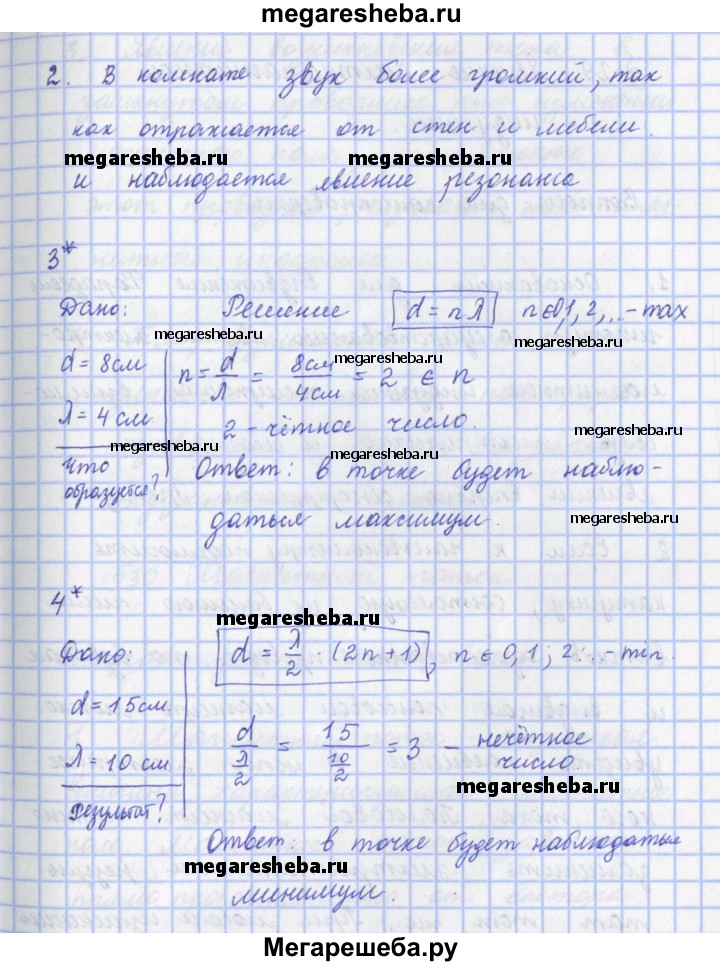 megaresheba.ru
2. В комнате звук более громкий, так
как отражается от стен и мебели.
megaresheba.ru megaresheba.ru
и наблюдается явление резонанса
3*
Дано: Решение d = nλ n∈0,1, 2, ...- max
megaresheba.ru
megaresheba.ru
d = 8см n = d/λ = 8см/4см = 2 ∈ n
λ = 4 см 2 - чётное число.
megaresheba.ru megaresheba.ru
Что Ответ: в точке будет наблю-
образуется? даться максимум.
megaresheba.ru
4*
megaresheba.ru
Дано: d = λ/2 · (2n+1), n ∈ 0, 1; 2...- min.
d = 15см
λ = 10 см d/(λ/2) = 15/(10/2) = 3 - нечётное
число.
megaresheba.ru
Результат?
Ответ: в точке будет наблюдаться
megaresheba.ru
минимум.
Мегарешеба.ру